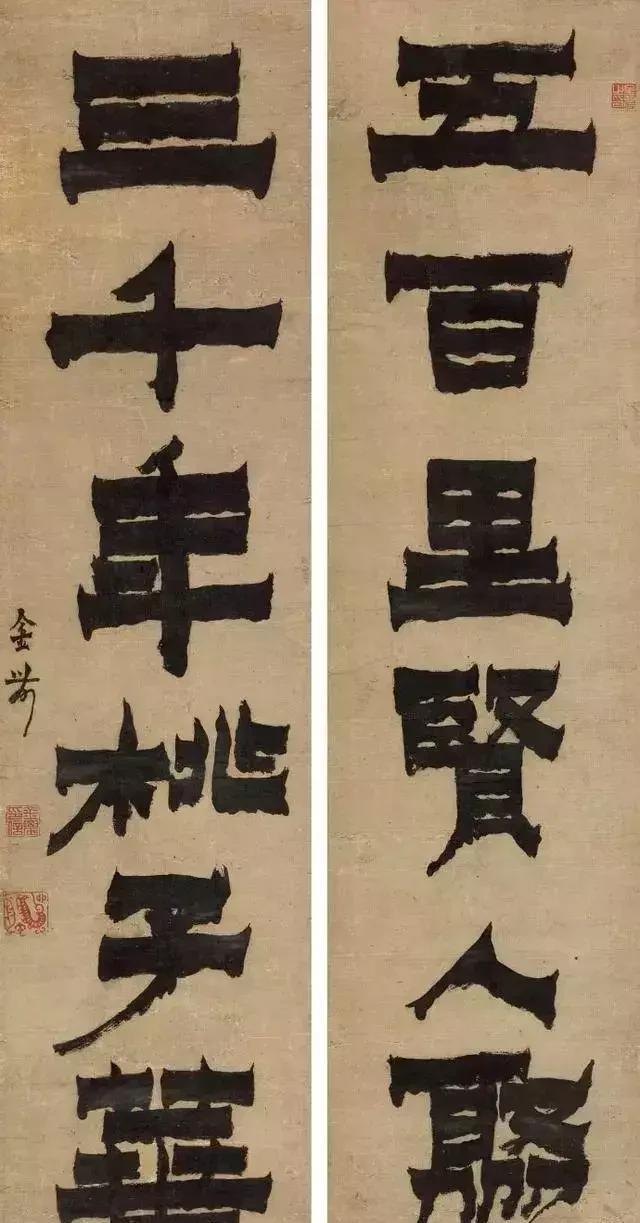 五百里賢人聚
三千年桃子華
金農